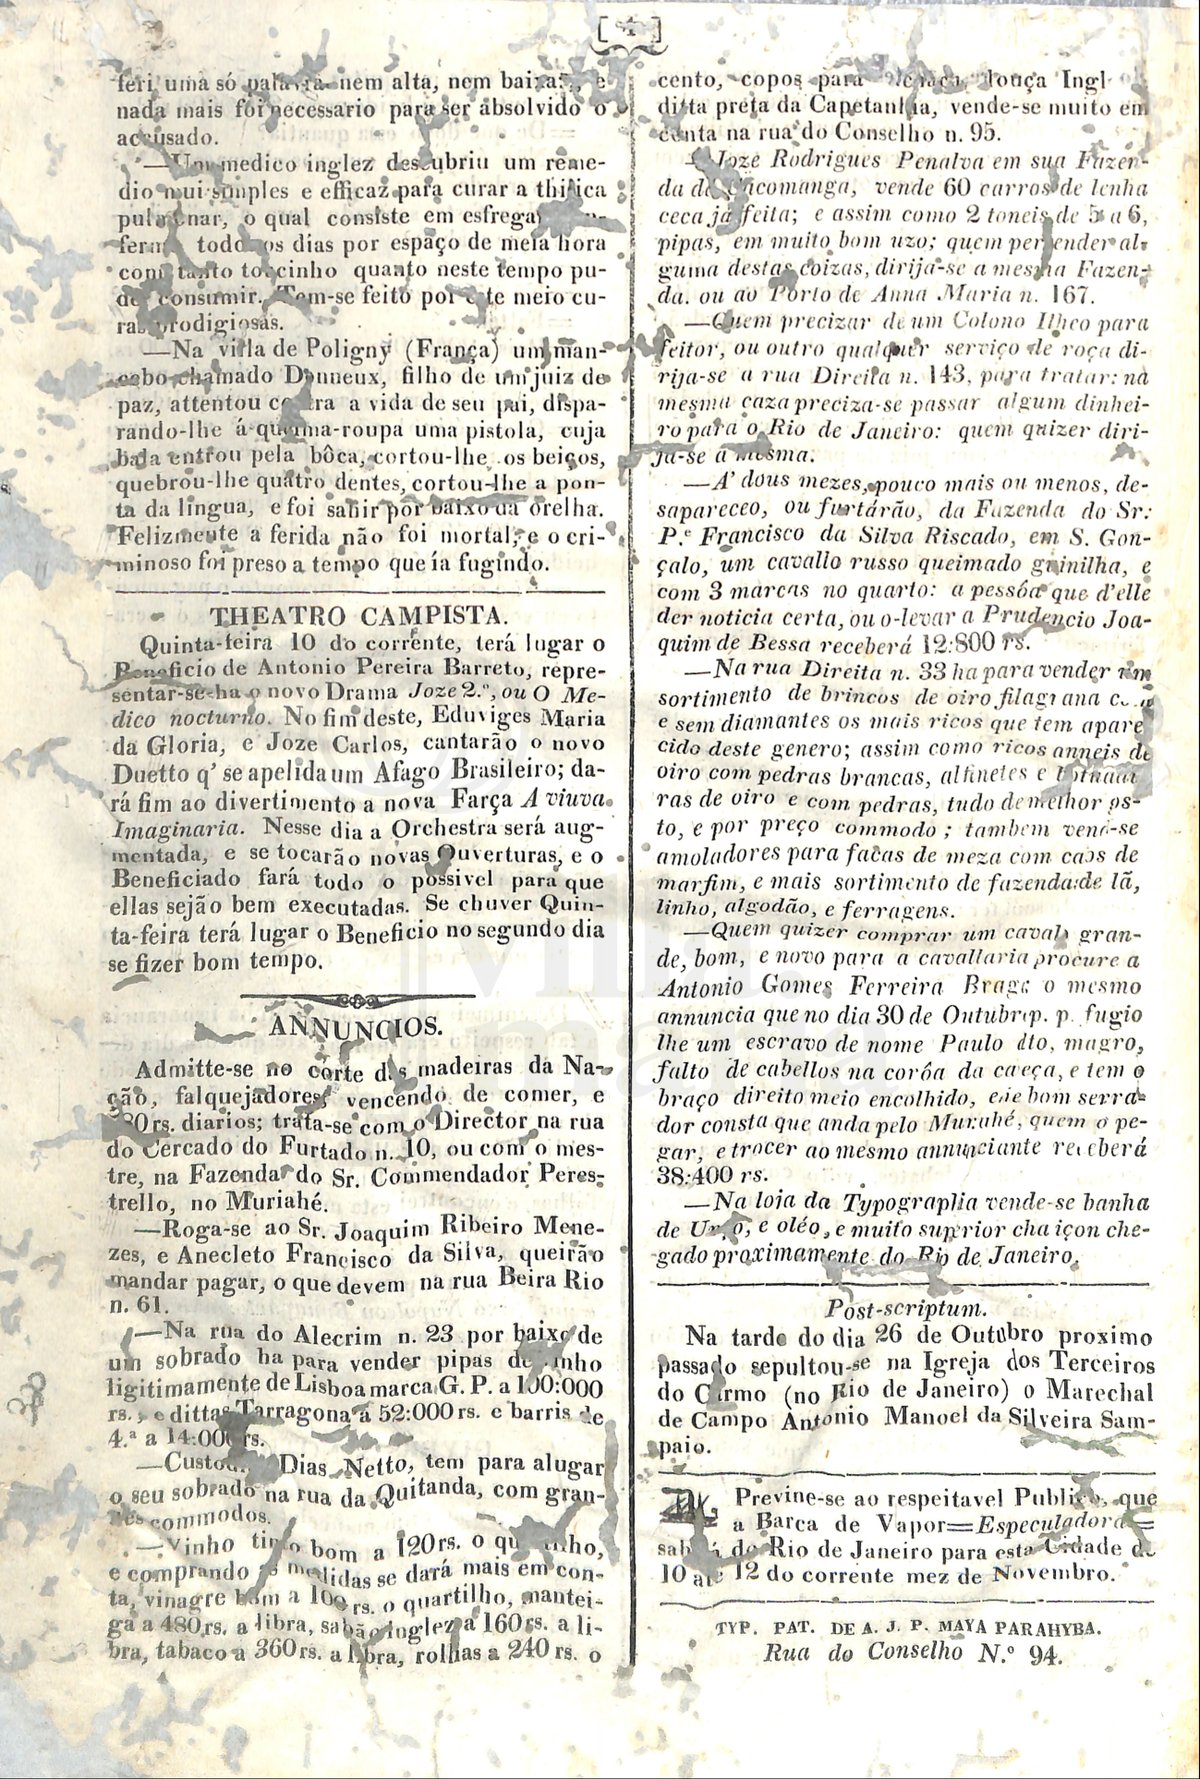 [ 4 ]
feri uma só palavra nem alta, nem baixa, e
nada mais foi necessario para ser absolvido o
accusado.
—Um medico inglez descubriu um reme-
dio mui simples e efficaz para curar a thisica
pulmonar, o qual consiste em esfregar
ferm todos os dias por espaço de meia hora
com tanto toucinho quanto neste tempo pu-
der consumir. Tem-se feito por este meio cu-
ras prodigiosas.
—Na villa de Poligny (França) um man-
cebo chamado Donneux, filho de um juiz de
paz, attentou contra a vida de seu pai, dispa-
rando-lhe á queima-roupa uma pistola, cuja
bala entrou pela bôca, cortou-lhe os beiços,
quebrou-lhe quatro dentes, cortou-lhe a pon-
ta da lingua, e foi sahir por baixo da orelha.
Felizmente a ferida não foi mortal, e o cri-
minoso foi preso a tempo que ía fugindo.
THEATRO CAMPISTA.
Quinta-feira 10 do corrente, terá lugar o
Beneficio de Antonio Pereira Barreto, repre-
sentar-se-ha o novo Drama Joze 2.º, ou O Me-
dico nocturno. No fim deste, Eduviges Maria
da Gloria, e Joze Carlos, cantarão o novo
Duetto q' se apelida um Afago Brasileiro; da-
rá fim ao divertimento a nova Farça A viuva
Imaginaria. Nesse dia a Orchestra será aug-
mentada, e se tocarão novas Ouverturas, e o
Beneficiado fará todo o possivel para que
ellas sejão bem executadas. Se chuver Quin-
ta-feira terá lugar o Beneficio no segundo dia
se fizer bom tempo.
ANNUNCIOS.
Admitte-se no córte das madeiras da Na-
ção, falquejadores, vencendo de comer, e
80 rs. diarios; trata-se com o Director na rua
do Cercado do Furtado n. 10, ou com o mes-
tre, na Fazenda do Sr. Commendador Peres-
trello, no Muriahé.
—Roga-se ao Sr. Joaquim Ribeiro Mene-
zes, e Anecleto Francisco da Silva, queirão
mandar pagar, o que devem na rua Beira Rio
n. 61.
—Na rua do Alecrim n. 23 por baixo de
um sobrado ha para vender pipas de vinho
ligitimamente de Lisboa marca G. P. a 100:000
rs., e dittas Tarragona a 52:000 rs. e barris de
4.ª a 14:000 rs.
—Custodio Dias Netto, tem para alugar
o seu sobrado na rua da Quitanda, com gran-
des commodos.
—Vinho tinto bom a 120 rs. o quartilho,
e comprando as medidas se dará mais em con-
ta, vinagre bom a 100 rs. o quartilho, mantei-
ga a 480 rs. a libra, sabão Inglez a 160 rs. a li-
bra, tabaco a 360 rs. a libra, rolhas a 240 rs. o
cento, copos para louça Ingl
ditta preta da Capetanhia, vende-se muito em
conta na rua do Conselho n. 95.
—Joze Rodrigues Penalva em sua Fazen-
da de Cacomanga, vende 60 carros de lenha
ceca já feita; e assim como 2 toneis de 5 a 6,
pipas, em muito bom uzo; quem pertender al-
guma destas coizas, dirija-se a mesma Fazen-
da, ou ao Porto de Anna Maria n. 167.
—Quem precizar de um Colono Ilheo para
feitor, ou outro qualquer serviço de roça di-
rija-se a rua Direita n. 143, para tratar: na
mesma caza preciza-se passar algum dinhei-
ro para o Rio de Janeiro: quem quizer diri-
ja-se á mesma.
—A' dous mezes, pouco mais ou menos, de-
sapareceo, ou furtárão, da Fazenda do Sr:
P.e Francisco da Silva Riscado, em S. Gon-
çalo, um cavallo russo queimado grinilha, e
com 3 marcas no quarto: a pessôa que d'elle
der noticia certa, ou o-levar a Prudencio Joa-
quim de Bessa receberá 12:800 rs.
—Na rua Direita n. 33 ha para vender um
sortimento de brincos de oiro filagrana com
e sem diamantes os mais ricos que tem apare
cido deste genero; assim como ricos anneis de
oiro com pedras brancas, alfinetes e botuadu
ras de oiro e com pedras, tudo de melhor gos-
to, e por preço commodo; tambem vende-se
amoladores para facas de meza com cabos de
marfim, e mais sortimento de fazenda: de lã,
linho, algodão, e ferragens.
—Quem quizer comprar um cavalo gran-
de, bom, e novo para a cavallaria procure a
Antonio Gomes Ferreira Braga o mesmo
annuncia que no dia 30 de Outubro p. p. fugio
lhe um escravo de nome Paulo alto, magro,
falto de cabellos na corôa da cabeça, e tem o
braço direito meio encolhido, ele bom serra-
dor consta que anda pelo Muriahé, quem o pe-
gar, e trocer ao mesmo annunciante receberá
38:400 rs.
—Na loja da Typographia vende-se banha
de Urso, e oléo, e muito superior cha içon che-
gado proximamente do Rio de Janeiro.
Post-scriptum.
Na tarde do dia 26 de Outubro proximo
passado sepultou-se na Igreja dos Terceiros
do Carmo (no Rio de Janeiro) o Marechal
de Campo Antonio Manoel da Silveira Sam-
paio.
Previne-se ao respeitavel Publico, que
a Barca de Vapor=Especuladora=
sahirá do Rio de Janeiro para esta Cidade de
10 até 12 do corrente mez de Novembro.
TYP. PAT. DE A. J. P. MAYA PARAHYBA.
Rua do Conselho N.º 94.